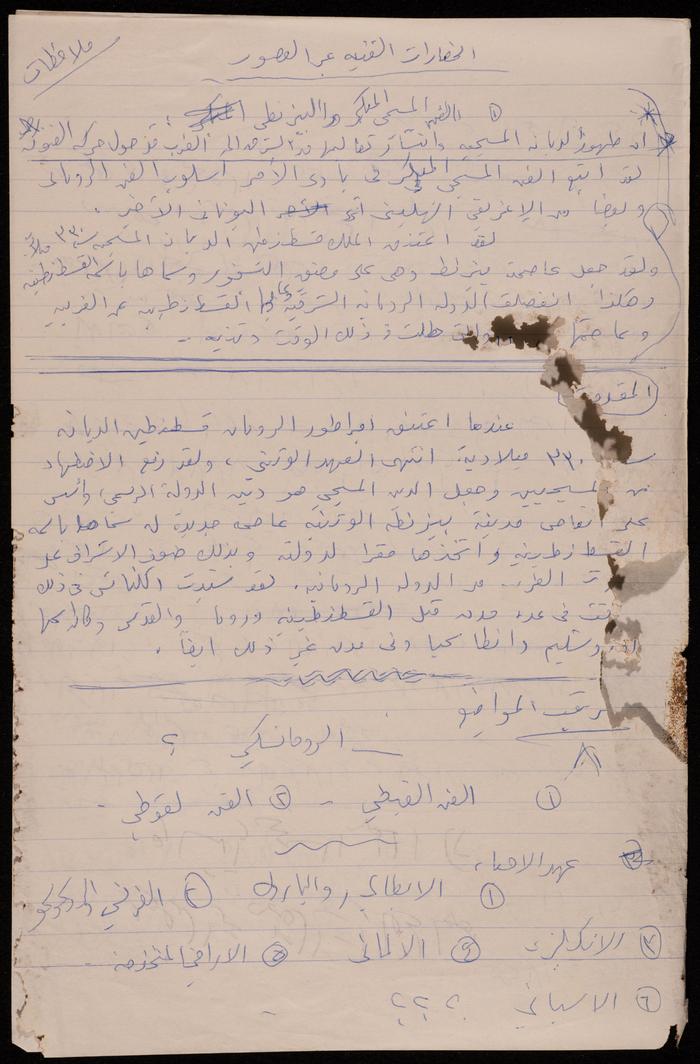 ملاحظات
الحضارات الفنية عبر العصور
① الفن المسيحي المبكر والبيزنطي :
ان ظهور الديانه المسيحيه وانتشار تعاليمها من الشرق الى الغرب قد حول حركه الفنون
لقد اتبع الفن المسيحي المبكر في بادئ الأمر اسلوب الفن الروماني
وايضا من الإغريقي الهليني اليوناني الأخر .
لقد اعتنق الملك قسطنطين الديانة المسيحية سنة ٣٣٠ ميلادي
ولقد جعل عاصمة بيزنطه وهي على مضيق البسفور وسماها باسمه القسطنطينية
وهكذا انفصلت الدوله الرومانيه الشرقية القسطنطينيه عن الغربيه
وعاصمتها ظلت في ذلك الوقت وثنيه .
المقدمة
عندما اعتنق امبراطور الرومان قسطنطين الديانه
٣٣٠ ميلادية انتهى العهد الوثني ، ولقد رفع الاضطهاد
عن المسيحيين وجعل الدين المسيحي هو دين الدولة الرسمي وأسس
على انقاض مدينة بيزنطة الوثنية عاصمة جديدة له سماها باسمه
القسطنطينيه واتخذها مقرا لدولته وبذلك الاشراف على
من الدوله الرومانيه . لقد شيدت الكنائس في ذلك
الوقت في عدة مدن مثل القسطنطينيه وروما والقدس وكان اسمها
اورشليم وانطاكيا وفي مدن غير ذلك ايضاً .
ترتيب المواضيع
الرومانسكي ؟
① الفن القبطي - ② الفن القوطي -
عهد الاحياء
① الايطالي والباروك ② الفرنسي والروكوكو
③ الانكليزي ④ الالماني ⑤ الاراضي المنخفضه -
⑥ الاسباني ؟ ؟ ؟